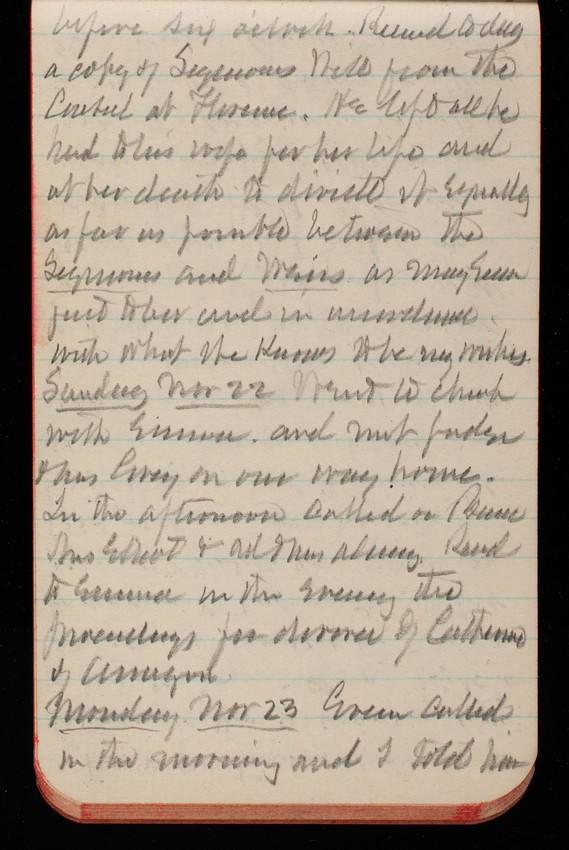 before six o'clock. Received today
a copy of Seymours Will from the
Consul at Florence. He left all he
had to his wife for her life and
at her death to divide it equally
as far as possible between the
Seymours and Weirs as may seem
just to her and in accordance
with what she knows to be my wishes.
Sunday Nov 22 Went to church
with Emma. and met
& Mrs on our way home.
In the afternoon called on
Mrs Elliot & Mrs Read
to Emma in the evening the
proceedings for divorce of Catherine
of Arragon.
Monday Nov 23 Green called
in the morning and I told him